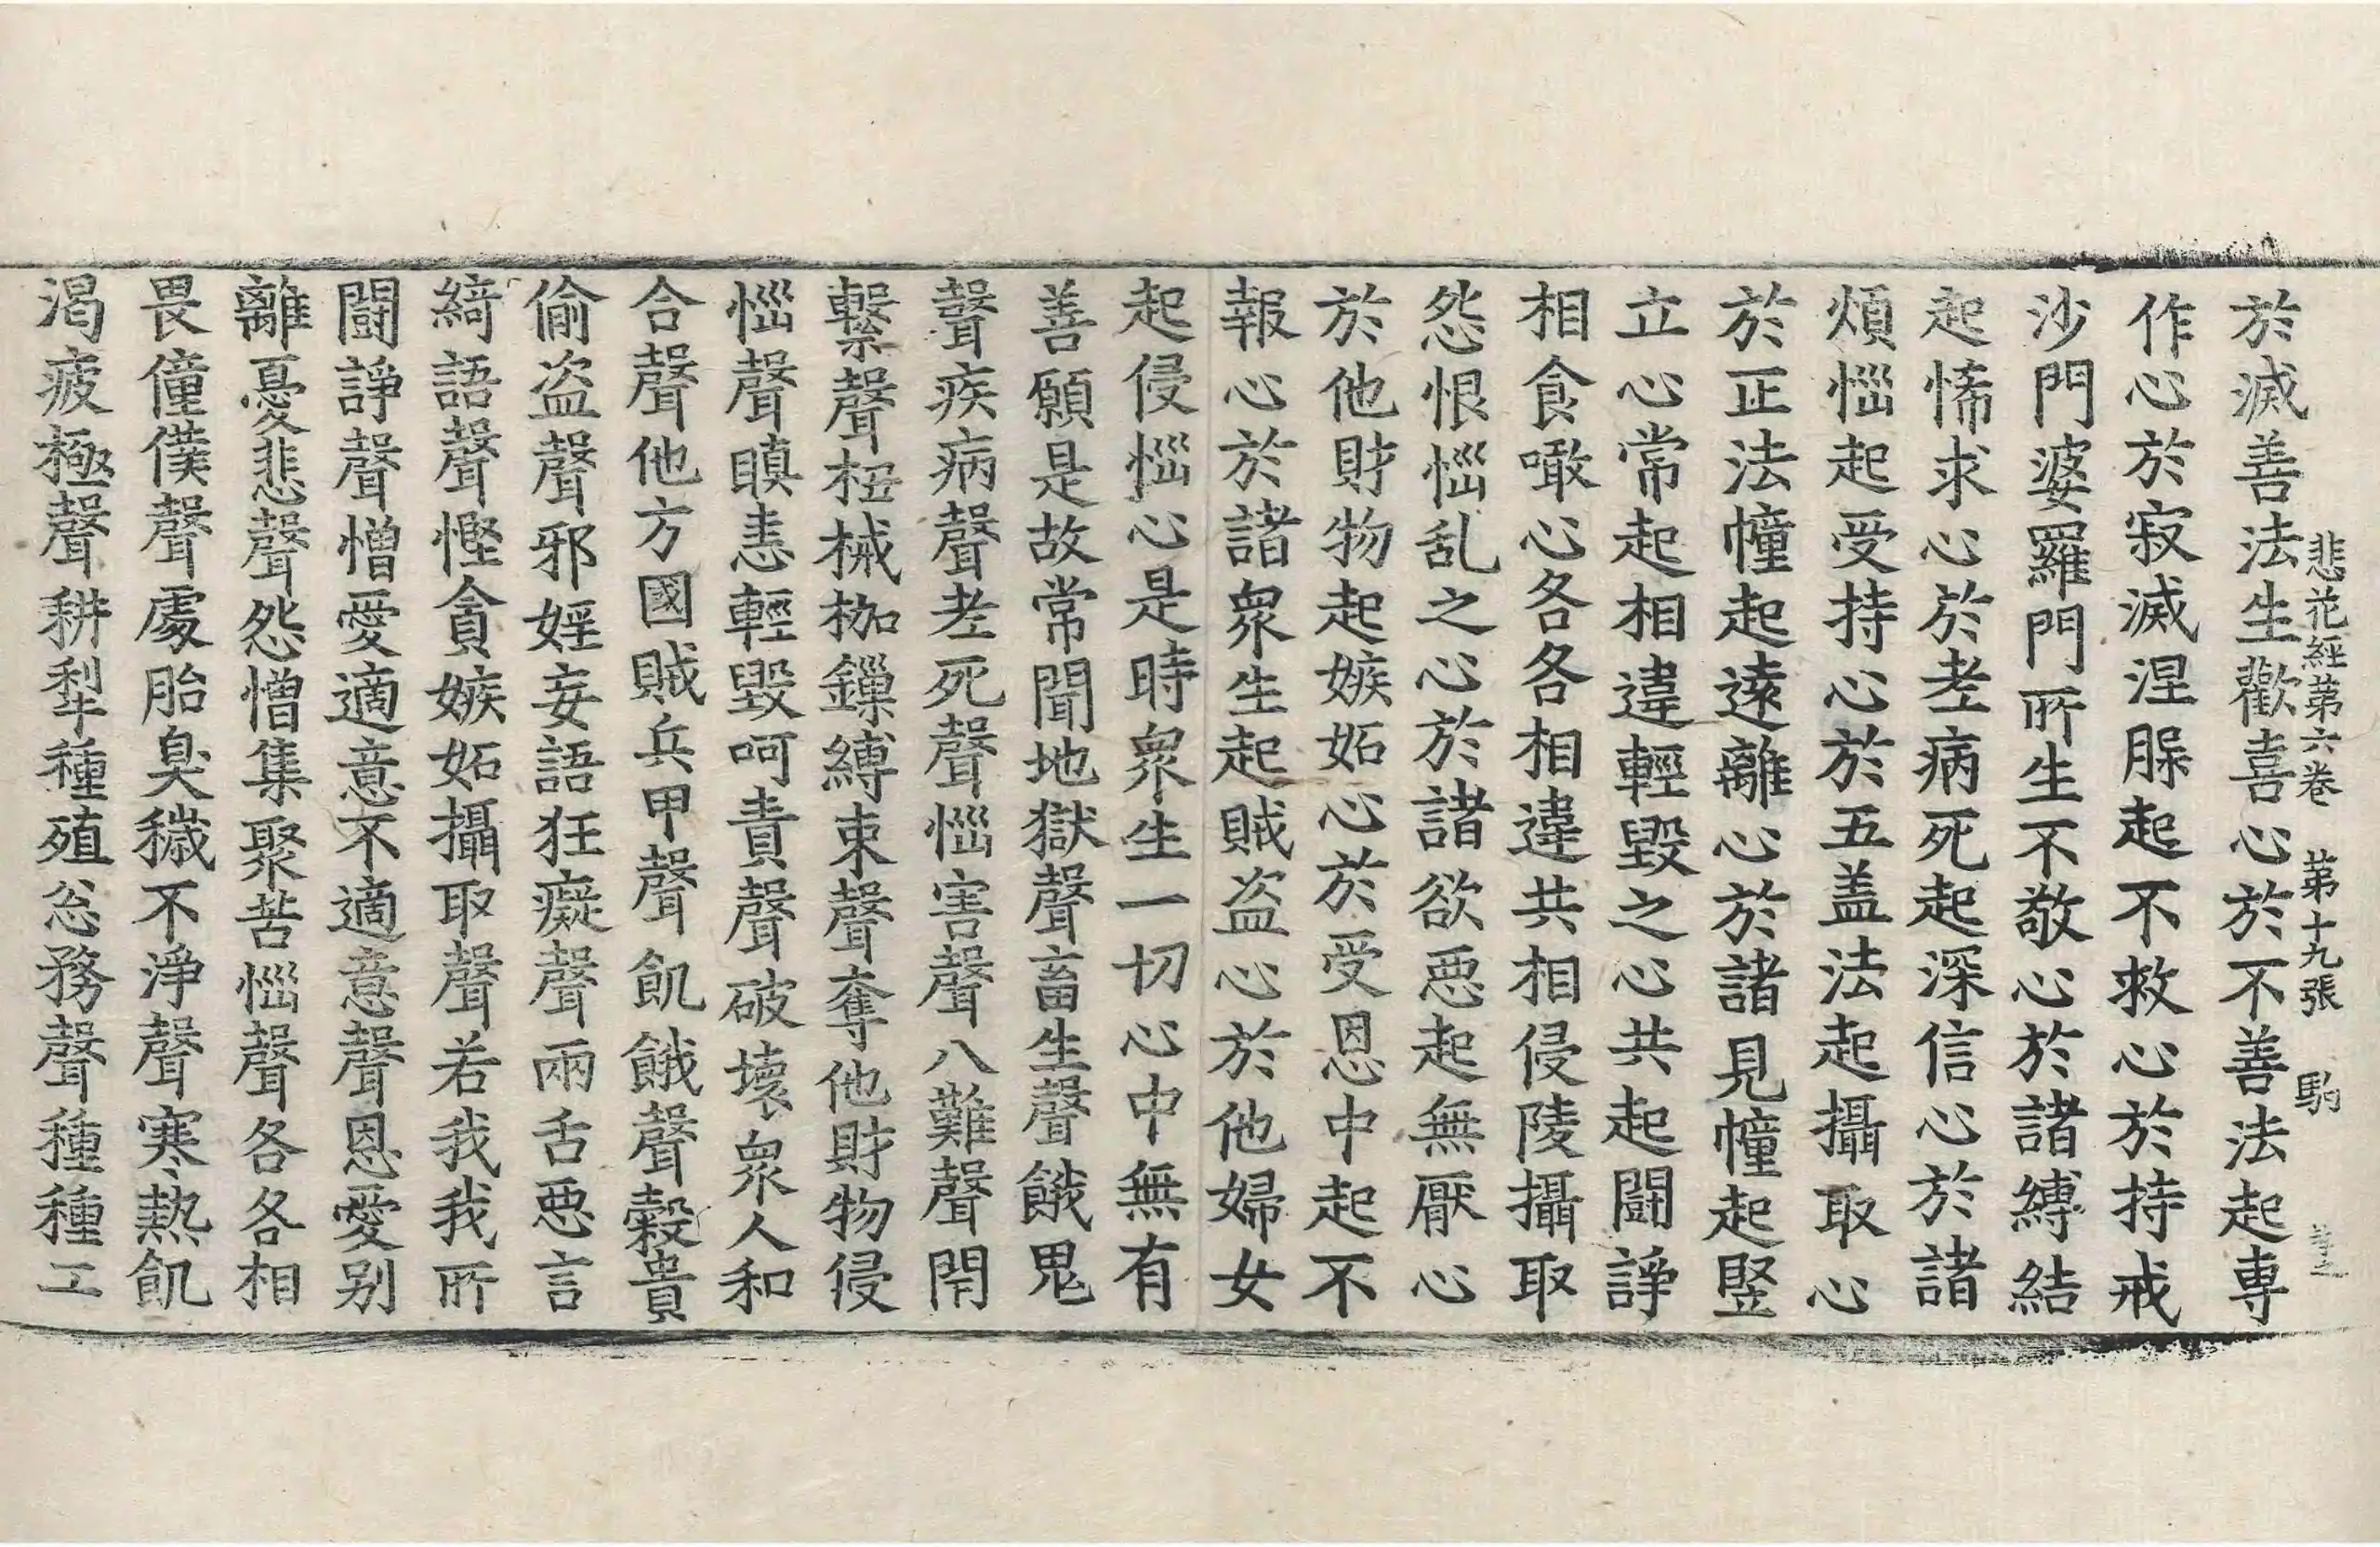 悲花經第六卷　第十九張　駒
於滅善法生歡喜心於不善法起專
作心於寂滅涅脲起不救心於持戒
沙門婆羅門所生不敬心於諸縛結
起悕求心於老病死起深信心於諸
煩惱起受持心於五盖法起攝取心
於正法幢起遠離心於諸見幢起竪
立心常起相違輕毀之心共起鬪諍
相食噉心各各相違共相侵陵攝取
怨恨惱乱之心於諸欲惡起無厭心
於他財物起嫉妬心於受恩中起不
報心於諸衆生起賊盗心於他婦女
起侵惱心是時衆生一切心中無有
善願是故常聞地獄聲畜生聲餓鬼
聲疾病聲老死聲惱害聲八難聲閇
繫聲杻械枷鏁縛束聲奪他財物侵
惱聲瞋恚輕毀呵責聲破壞衆人和
合聲他方國賊兵甲聲飢餓聲穀貴
偷盗聲邪婬妄語狂癡聲兩舌惡言
綺語聲慳貪嫉妬攝取聲若我我所
鬪諍聲憎愛適意不適意聲恩愛別
離憂悲聲怨憎集聚苦惱聲各各相
畏僮僕聲處胎臭穢不淨聲寒熱飢
渴疲極聲耕犁種殖忩務聲種種工